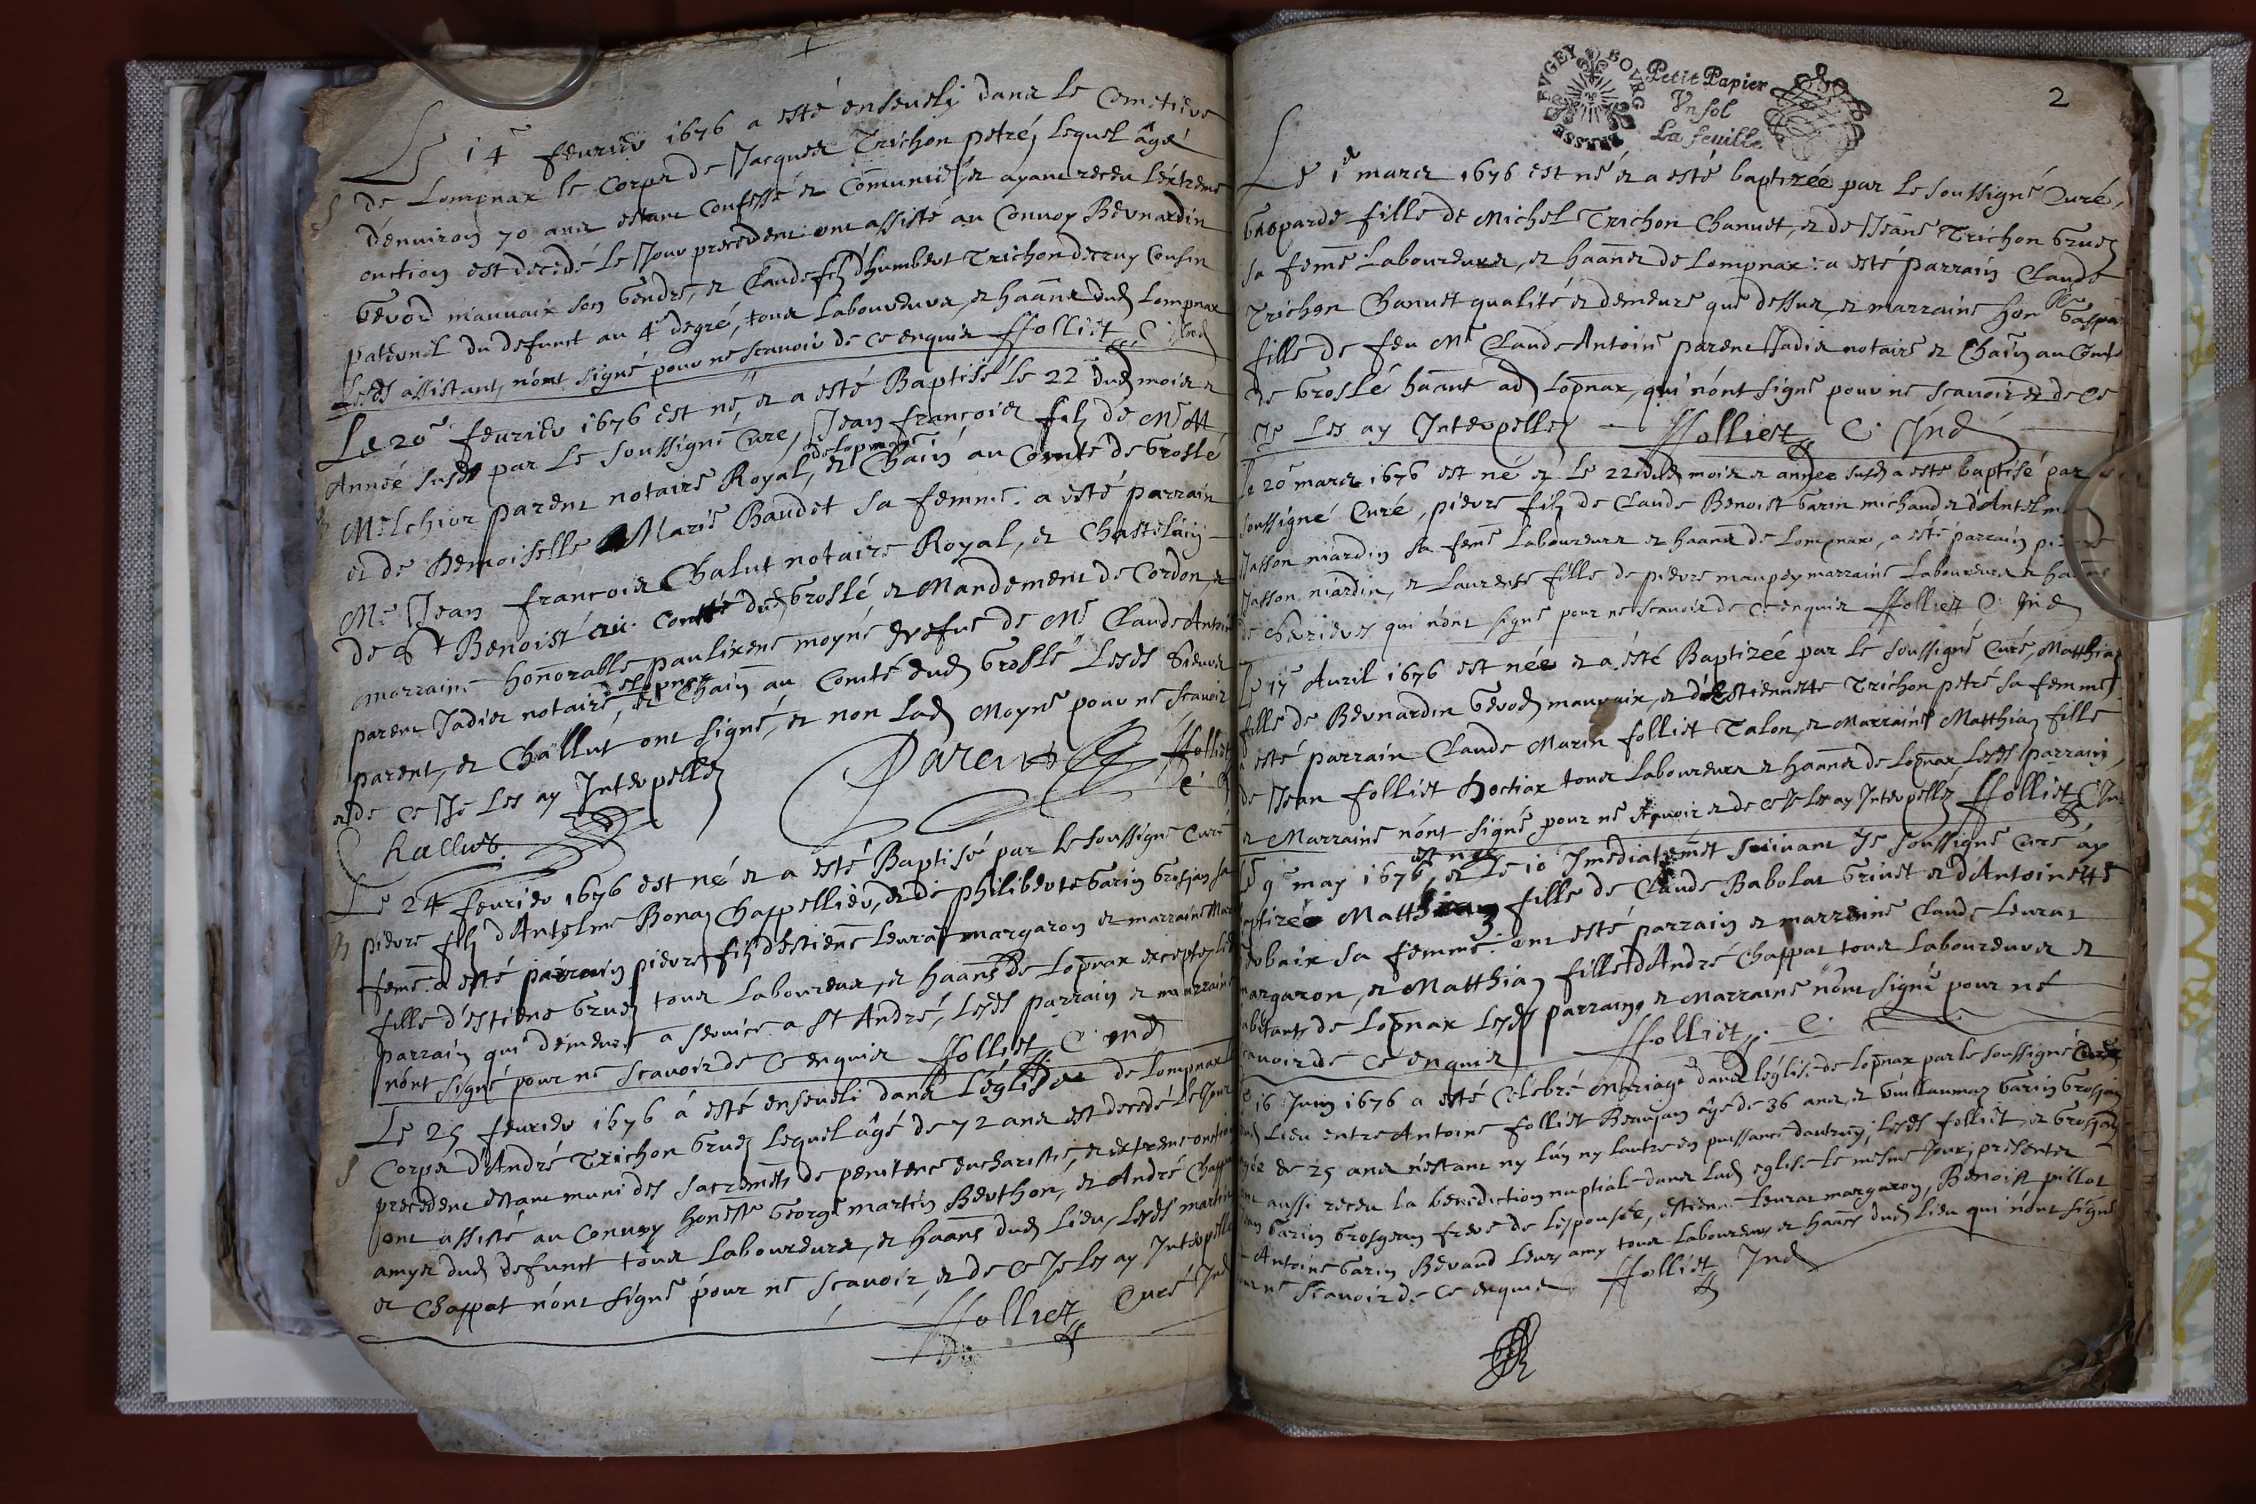 Le 14e feurier 1676 a esté enseuely dans le Cemetiere
de Lompnax le Corps de Jacques Trichon petré, lequel âgé
d'enuiron 70 ans estant Confessé et Communié et ayant receu l'extreme
onction est decedé le Jour precedent ont assisté au Conuoy Bernardin
Geuod mauuaix son Gendre, et Claude filz d'humbert Trichon decruy Cousin
paternel du defunct au 4e degré, tous laboureurs, et haans dud Lompnax
Lesds assistant, n'ont signé pour ne scauoir de ce enquis ffolliet C. Ind
Le 20e feurier 1676 est né, et a esté Baptisé le 22e dud mois et
Année susds par le soussigné Curé, Jean françois filz de Me
Melchior parent notaire Royal, de Lopnax et Chain au Comté de Groslé
et de Demoiselle Marie Baudet sa femme: a esté parrain
Me Jean françois Chalut notaire Royal, et Chastelain
de St Benoist au Comté dud Groslé et Mandement de Cordon, et
marraine honnorable paulixene moyne vefue de Me Claude Antoine
parent Jadis notaire, de Lopnax et Chain au Comté dud Groslé Lesds Sieurs
parent, et Challut ont signé, et non lad Moyne pour ne scauoir
et de ce Je les ay Interpellez Parent ffolliet
Challut C
Le 24 feurier 1676 est né et a esté Baptisé par le soussigné Curé
pierre filz d'Antelme Bonaz Chappellier, et de philiberte Garin Grosjan sa
feme a esté parrain pierre filz d'Estiene Leurat margaron et marraine
fille d'estiene Gruz tous laboureurs, et haans de Lopnax excepté led
parrain qui demeure a seruice a St André, Lesds parrain et marraine
n'ont signé pour ne scauoir de ce enquis ffolliet C. Ind
Le 25 feurier 1676 a esté enseueli dans l'église de Lompnax le
Corps d'André Trichon Gruz lequel âgé de 72 ans est decedé le Jour
precedent estant muni des sacrements de penitence eucharistie, et extreme onction
ont assisté au Conuoy honeste George martin Berthon, et André Chappat
amys dud defunct tous laboureurs, et haans dud lieu, Lesds martin
et Chappat n'ont signé pour ne scauoir, et de ce Je les ay Interpellé
ffolliet Curé Ind
BRESSE BVGEY BOVRG
Petit Papier
Vn sol
La feuille
2
Le 1e mars 1676 est né et a esté baptizée par le soussigné Curé,
Gasparde fille de Michel Trichon Chanuet, et de Jeane Trichon Gruz
sa feme laboureurs, et haans de Lompnax: a esté parrain Claude
Trichon Chanuet qualité et demeure que dessus, et marraine hon Gaspa
fille de feu Me Claude Antoine parent Jadis notaire et Chain au Comté
de Groslé haante ad Lopnax, qui n'ont signe pour ne scauoir et de ce
Je les ay Interpellez ffolliet C. Ind
Le 20 mars 1676 est né et le 22 dud mois et annee susd a esté baptisé par
soussigné Curé, pierre filz de Claude Benoist Garin michaud et d'Antelme
Jasson niardin sa feme laboureurs et haans de Lompnax, a esté parrain pierre
Jasson niardin, et Laurense fille de pierre maupoy marraine laboureurs et haans
de Cheurieres qui n'ont signé pour ne scauoir de ce enquis ffolliet C. Ind
Le 17 Auril 1676 est née et a esté Baptizée par le soussigné Curé, Matthiaz
fille de Bernardin Geuod mauuaix, et d'Estiennette Trichon petré sa femme
a esté parrain Claude Marin folliet Talon, et Marraine Matthiaz fille
de Jean folliet Doctiax tous laboureurs et haans de Lopnax, Lesds parrain,
et Marraine n'ont signé pour ne scauoir et de ce Je les ay Interpellé ffolliet C Ind
Le 9e may 1676 est née, et le 10 Imediatemet suiuant Je soussigné Curé ay
baptizée Matthiaz fille de Claude Babolat Griuet et d'Antoinette
sa femme: ont esté parrain et marraine Claude Leurat
margaron, et Matthiaz fille d'André Chappat tous laboureurs et
abitants de Lopnax Lesds parrain, et Marraine n'ont signé pour ne
scauoir de ce enquis ffolliet C.
Le 16 Juin 1676 a esté Celebré Mariage dans l'église de Lopnax par le soussigné Curé
dud Lieu entre Antoine folliet Beaujan âgé de 36 ans, et Guillaumaz Garin Grosjan
âgée de 25 ans n'estant ny l'un ny lautre en puissance dautruy; Lesds folliet, et Grosjan
ont aussi receu la benediction nuptiale dans lad eglise le mesme Jour; presentes
Jean Garin Grosjean frere de l'espousée, estienne Leurat margaron, Benoist pillot
Antoine Garin Beraud leurs amy tous laboureurs et haans dud lieu qui n'ont signé
pour ne scauoir de ce enquis ffolliet Ind